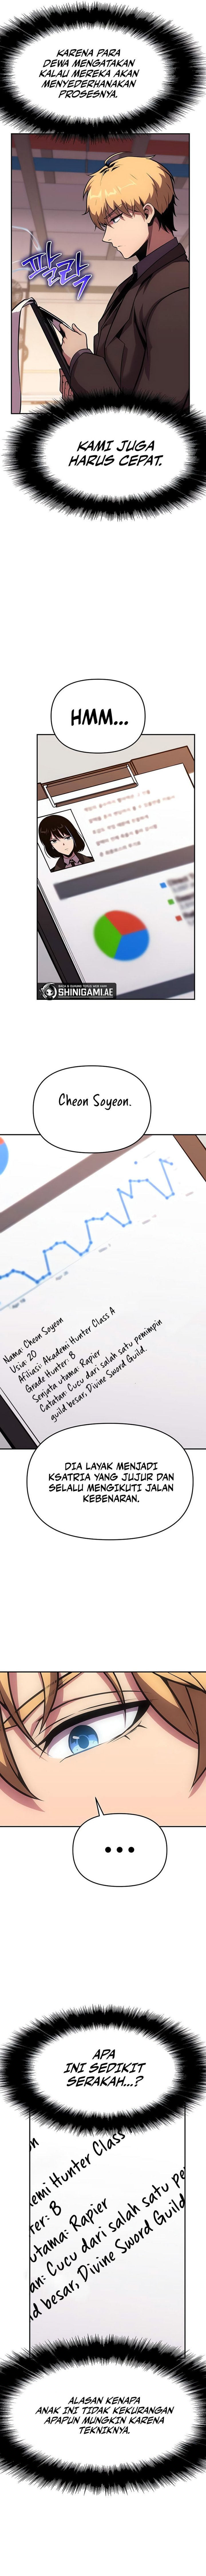 KARENA PARA
DEWA MENGATAKAN
KALAU MEREKA AKAN
MENYEDERHANAKAN
PROSESNYA.
파라락
KAMI JUGA
HARUS CEPAT.
HMM...
SHINIGAMI.AE
Cheon Soyeon.
Nama: Cheon Soyeon
Usia: 20
Afiliasi: Akademi Hunter Class A
Grade Hunter: B
Senjata utama: Rapier
Catatan: Cucu dari salah satu pemimpin
guild besar, Divine Sword Guild.
DIA LAYAK MENJADI
KSATRIA YANG JUJUR DAN
SELALU MENGIKUTI JALAN
KEBENARAN.
...
APA
INI SEDIKIT
SERAKAH...?
emi Hunter Class
ter: B
utama: Rapier
an: Cucu dari salah satu pe
ld besar, Divine Sword Guild
ALASAN KENAPA
ANAK INI TIDAK KEKURANGAN
APAPUN MUNGKIN KARENA
TEKNIKNYA.